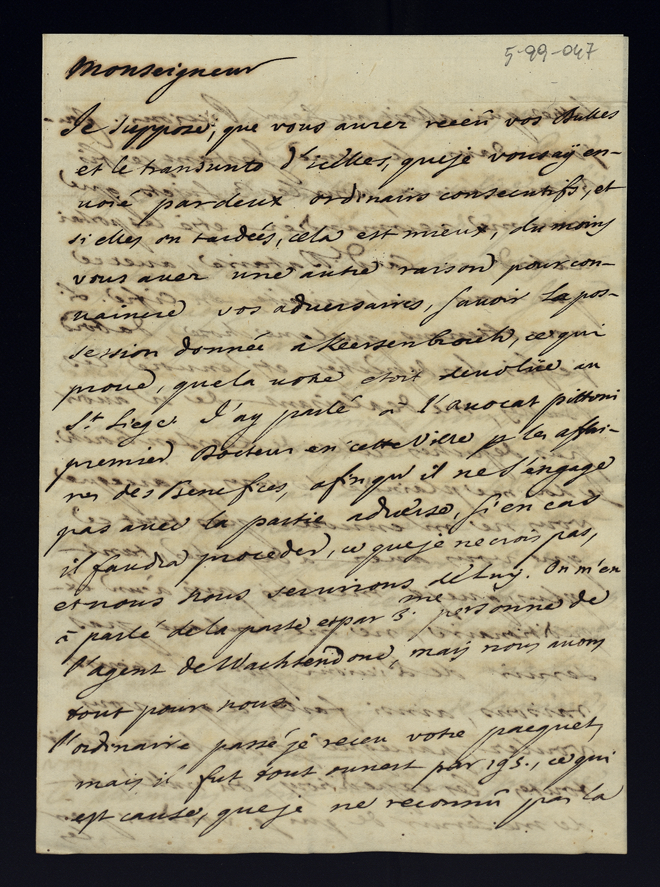 5-99-047
Monseigneur
Je suppose, que vous aurez receu vos Bulles
et le transunto d'icelles, que je vous ay en-
voié par deux ordinairs consecutifs, et
si elles on tardées, cela est mieux, du moins
vous avez une autre raison pour con-
vaincre vos adversaires, savoir la pos-
session donnée a Keersenbroich, ce qui
prouve, que la votre etoit devoluë au
St. Siege. J'ay parlé a l'avocat pittoni
premier Docteur en cette Ville p les affai-
res des Benefices, afin qu'il ne s'engage
pas avec la partie adverse, si en cas
il faudra proceder, ce que je ne crois pas,
et nous nous servirions de luy. On m'en
à parlé de la parte et par 3.me personne de
l'agent de Wachtendonc, mais nous avons
tout pour nous.
l'ordinaire passé je receu votre pacquet,
mais il fut tout ouvert par , ce qui
est cause, que je ne reconnû pas la